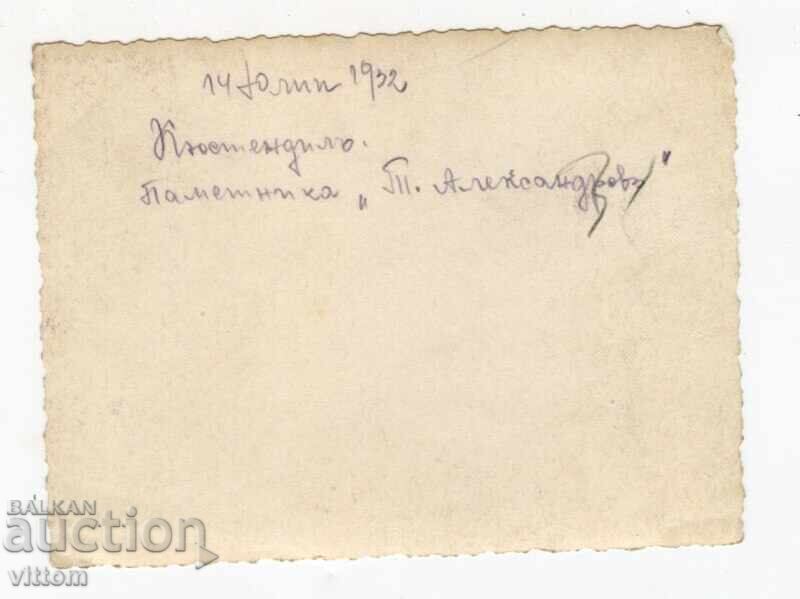 14 Юлии 1932
Кюстендилъ.
Паметника „Т. Александровъ"
BALKAN
auction
vittom